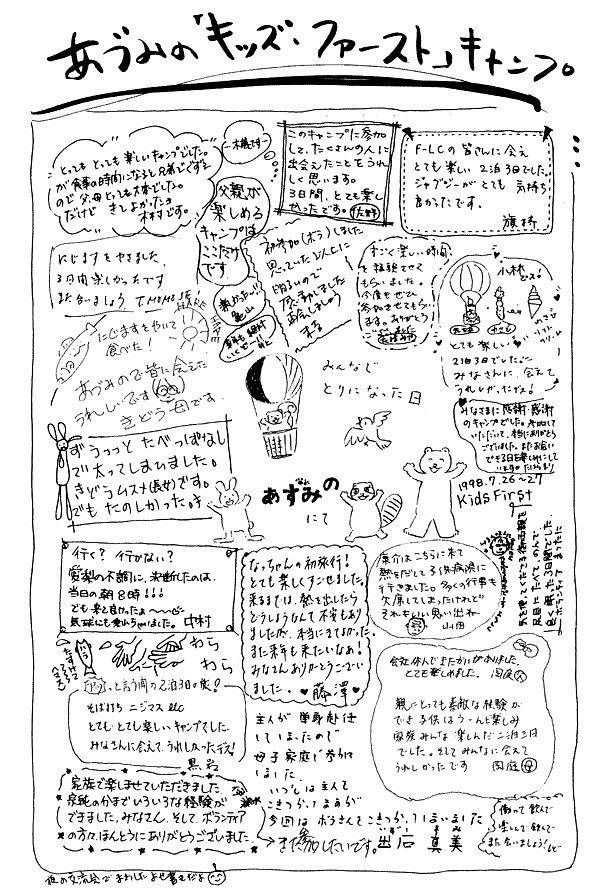 あづみの「キッズ・ファースト」キャンプ。
とっても とっても 楽しいキャンプでした。
が食事の時間になると兄弟でぐずる
ので 父、母 とっても大変でした。
だけど きてよかった。
木村です。
父親が
楽しめる
キャンプは
ここだけ
です
このキャンプに参加
して、たくさんの人に
出会えたことをうれ
しく思います。
3日間、とても楽し
かったです。佐野
F-LCの皆さんに会え
とても楽しい2泊3日でした。
ジャグジーがとても 気持ち
良かったです。
にじますをやきました。
3日間楽しかったです
また会いましょう
初参加(ボラ)しました
思っていた以上に
明るいので
感動しました
すごく楽しい時間
を経験させて
もらいました。
今度もぜひ
参加させてもら
います。ありがとう
小林
デス!
ソフト
クリーム
とても楽しい
2泊3日でした。
みなさんに会えて
うれしかったデス!
にじますをやいて
食べた!
あづみので皆に会えた
うれしいです
きどう母です.
みんなで
とりになった日
みなさまに感謝・感謝
のキャンプでした。参加して
いただいて、本当にありがとう
ございました。またお会い
できる日を楽しみにして
います。
1998.7.26~27
Kids First
ずうっっと たべっぱなし
で太ってしまいました。
きどうムスメ(長女)です。
でもたのしかった。
あずみの
にて
行く? 行かない?
愛梨の不調に、決断したのは、
当日の朝8時!!!
でも来て良かったよ~~
気球にも乗れちゃいました。中村
なっちゃんの初旅行!
とても楽しくすごせました。
来るまでは、熱を出したら
どうしようなんて不安もあり
ましたが、本当にきてよかった。
また来年も来たいなあ!
みなさんありがとうござい
ました。♥藤澤♥
亮介はこちらに来て
熱をだして子供病院に
行きました。多くの行事も
欠席してしまったけれど
それもいい思い出ね
山田
わら
わら
アッと言う間の2泊3日の旅!
そば打ち ニジマス etc
とてもとても楽しいキャンプでした。
みなさんに会えて、うれしかったデス!
黒岩
会社休んできたかいがありました。
とても楽しめました。
親にとっても素敵な経験が
でき子供はうーんと楽しみ
家族みんな楽しんだ二泊三日
でした。そしてみんなに会えて
うれしかったです
主人が単身赴任
してしまったので
母子家庭で参加し
ました.
いつもは主人で
こきつかってますが
今回はボラさんでこきつかってしまいました
また参加したいです。出石 真美
家族で楽しませていただきました。
いろいろな経験が
できました。みなさん、そして、ボランティア
の方々、ほんとうにありがとうございました。
働って飲んで
楽しんで飲んで
また会いましょう!
夜の交流会でまわしたよせ書きだよ